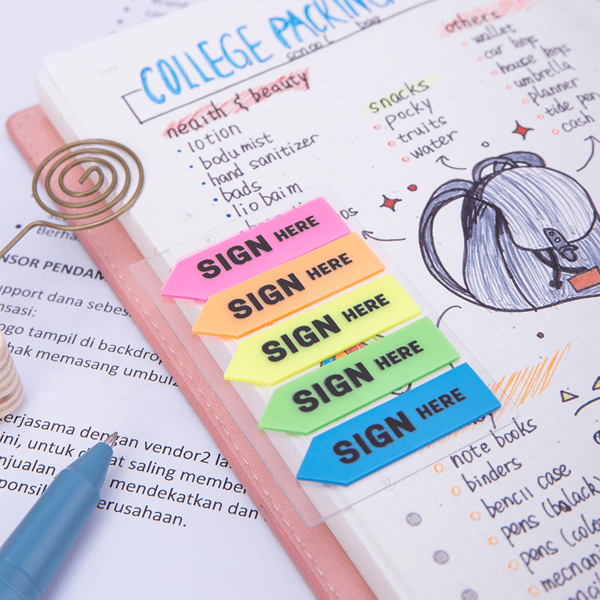 COLLEGE PACKING
school bag
health & beauty
lotion
body mist
hand sanitizer
pads
lip balm
snacks
pocky
fruits
water
others
wallet
car keys
house keys
umbrella
planner
tide pen
cash
SIGN HERE
SIGN HERE
SIGN HERE
SIGN HERE
SIGN HERE
note books
binders
pencil case
pens (black)
pens (color)
NSOR PENDAM
upport dana sebes
nsasi:
ogo tampil di backdrop
hak memasang umbul
kerjasama dengan vendor2 la
ini, untuk saling member
njualan mendekatkan dan
ponsi perusahaan.